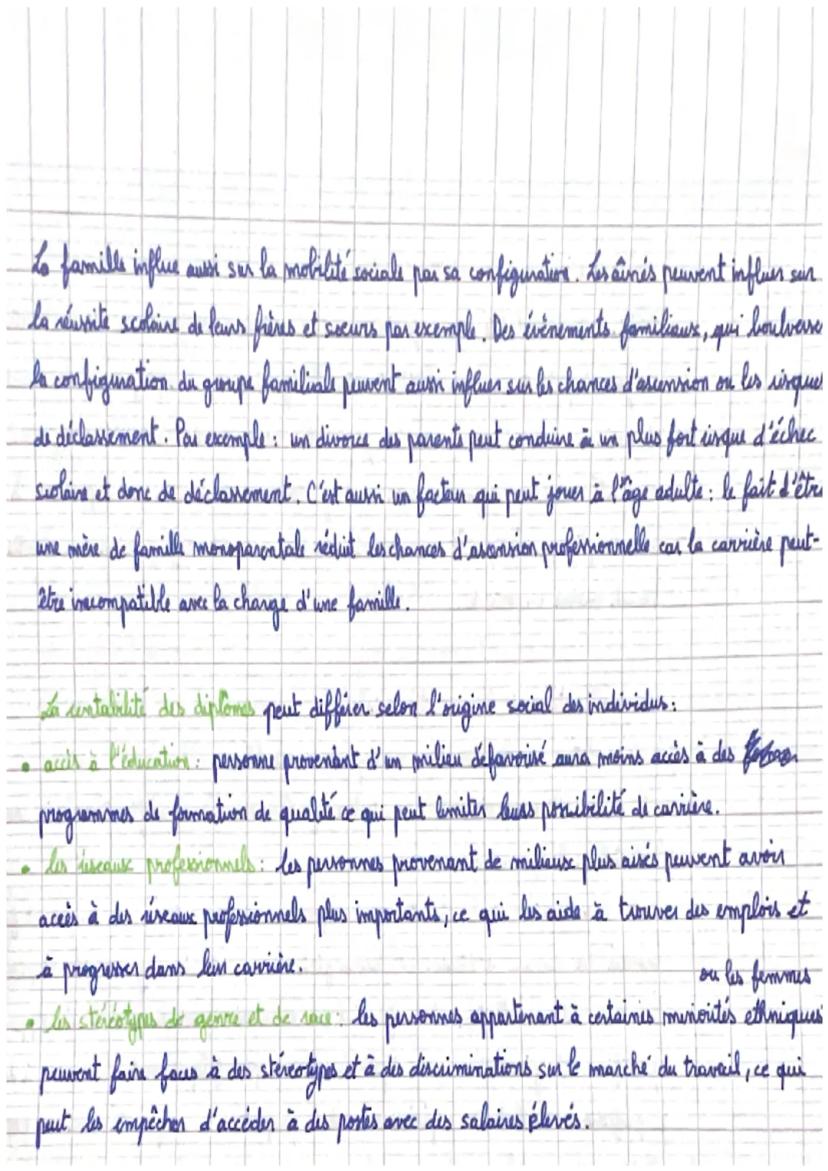 La famille influe aussi sur la mobilité sociale par sa configuration. Les aînés peuvent influer sur
la réussite scolaire de leurs frères et soeurs par exemple. Des évènements familiaux, qui boulverse
la configuration du groupe familiale peuvent aussi influer sur les chances d'ascension ou les risques
de déclassement. Par exemple : un divorce des parents peut conduire à un plus fort risque d'échec
scolaire et donc de déclassement. C'est aussi un facteur qui peut jouer à l'âge adulte : le fait d'être
une mère de famille monoparentale réduit les chances d'ascension professionnelle car la carrière peut-
être incompatible avec la charge d'une famille.
La rentabilité des diplômes peut différer selon l'origine social des individus :
• accès à l'éducation : personne provenant d'un milieu défavorisé aura moins accès à des
programmes de formation de qualité ce qui peut limiter leurs possibilité de carrière.
• les réseaux professionnels : les personnes provenant de milieux plus aisés peuvent avoir
accès à des réseaux professionnels plus importants, ce qui les aide à trouver des emplois et
à progresser dans leur carrière.
ou les femmes
• les stéréotypes de genre et de race : les personnes appartenant à certaines minorités ethniques
peuvent faire faces à des stéréotypes et à des discriminations sur le marché du travail, ce qui
peut les empêcher d'accéder à des postes avec des salaires élevés.